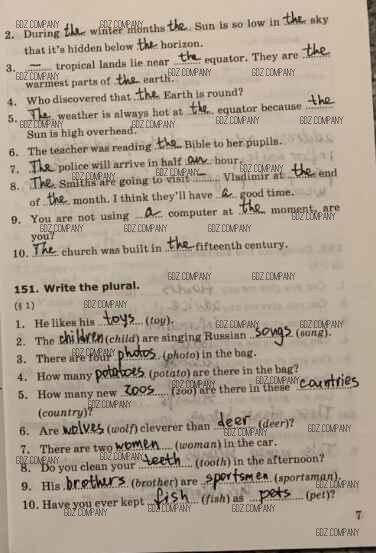 GDZ.COMPANY GDZ.COMPANY GDZ.COMPANY
2. During the winter months the Sun is so low in the sky
that it's hidden below the horizon.
GDZ.COMPANY GDZ.COMPANY
3. — tropical lands lie near the equator. They are the
GDZ.COMPANY GDZ.COMPANY GDZ.COMPANY
warmest parts of the earth.
4. Who discovered that the Earth is round?
GDZ.COMPANY GDZ.COMPANY
5. The weather is always hot at the equator because the
GDZ.COMPANY GDZ.COMPANY GDZ.COMPANY
Sun is high overhead.
6. The teacher was reading the Bible to her pupils.
GDZ.COMPANY GDZ.COMPANY
7. The police will arrive in half an hour.
GDZ.COMPANY GDZ.COMPANY GDZ.COMPANY
8. The Smiths are going to visit — Vladimir at the end
GDZ.COMPANY GDZ.COMPANY
of the month. I think they'll have a good time.
GDZ.COMPANY GDZ.COMPANY GDZ.COMPANY
9. You are not using a computer at the moment, are
GDZ.COMPANY GDZ.COMPANY
you?
GDZ.COMPANY GDZ.COMPANY GDZ.COMPANY
10. The church was built in the fifteenth century.
GDZ.COMPANY GDZ.COMPANY
GDZ.COMPANY GDZ.COMPANY
151. Write the plural.
GDZ.COMPANY
(§ 1)
GDZ.COMPANY GDZ.COMPANY
1. He likes his toys (toy).
GDZ.COMPANY GDZ.COMPANY
2. The children (child) are singing Russian songs (song).
GDZ.COMPANY GDZ.COMPANY
3. There are four photos (photo) in the bag.
GDZ.COMPANY
4. How many potatoes (potato) are there in the bag?
GDZ.COMPANY GDZ.COMPANY
5. How many new zoos (zoo) are there in these countries
GDZ.COMPANY GDZ.COMPANY
(country)?
GDZ.COMPANY
6. Are wolves (wolf) cleverer than deer (deer)?
GDZ.COMPANY GDZ.COMPANY
7. There are two women (woman) in the car.
GDZ.COMPANY
8. Do you clean your teeth (tooth) in the afternoon?
GDZ.COMPANY GDZ.COMPANY
9. His brothers (brother) are sportsmen (sportsman).
GDZ.COMPANY GDZ.COMPANY GDZ.COMPANY
10. Have you ever kept fish (fish) as pets (pet)?
GDZ.COMPANY GDZ.COMPANY GDZ.COMPANY
7